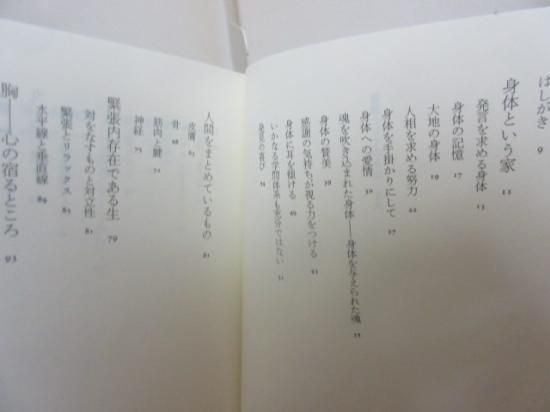 はしがき 9
身体という家 11
発言を求める身体 13
身体の記憶 17
大地の身体 19
人相を求める努力 22
身体を手掛かりにして 27
身体への愛情 30
魂を吹き込まれた身体――身体を与えられた魂 35
身体の賛美 39
感謝の気持ちが視る力をつける 43
身体に耳を傾ける 49
いかなる学問体系も充分ではない 51
発見の喜び 56
人間をまとめているもの 61
皮膚 63
骨 68
筋肉と腱 72
神経 75
緊張内存在である生 79
対をなすものと対立性 81
緊張とリラックス 85
水平線と垂直線 89
胸――心の宿るところ 93